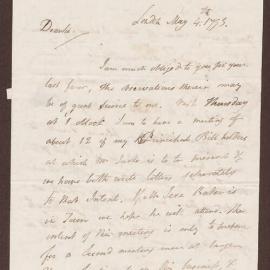 London May 4.th 1793.
Dear Sir.
I am much obliged to you for your
last favor, the observations therein may
be of great service to me. Next Thursday
at 1 o'Clock I am to have a meeting of
about 12 of my Principal Bill holders
at which Mr is to be present &
we have both wrote letters separately
to that Intent. If Mr Baker is
in Town we hope he will attend. The
intent of this meeting is only to prepare
for a Second meeting more at large